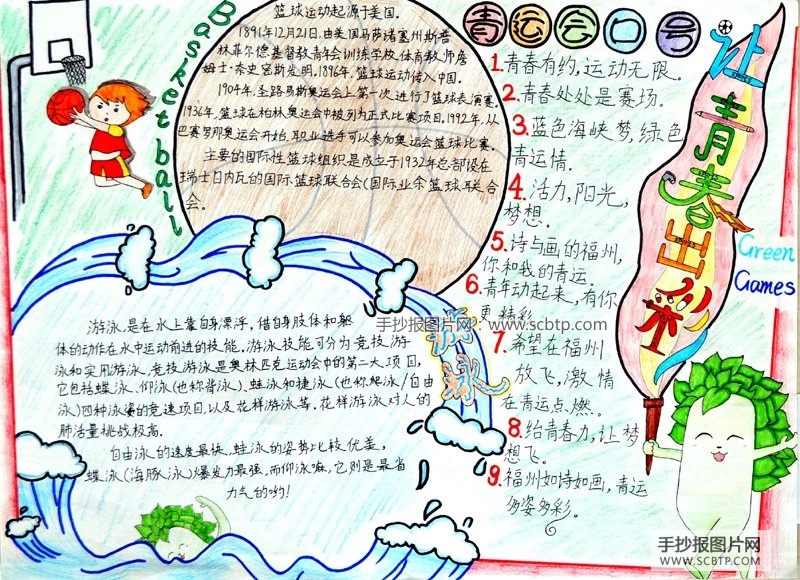 Basketball
篮球运动起源于美国。
1891年12月21日,由美国马萨诸塞州斯普
林菲尔德基督教青年会训练学校体育教师詹
姆士·奈史密斯发明。1896年,篮球运动传入中国。
1904年,圣路易斯奥运会上第一次进行了篮球表演赛。
1936年,篮球在柏林奥运会中被列为正式比赛项目。1992年,从
巴赛罗那奥运会开始,职业选手可以参加奥运会篮球比赛。
主要的国际性篮球组织是成立于1932年总部设在
瑞士日内瓦的国际篮球联合会(国际业余篮球联合
会。
青运会口号
1.青春有约,运动无限。
2.青春处处是赛场。
3.蓝色海峡梦,绿色
青运情.
4.活力,阳光,
梦想.
5.诗与画的福州,
你和我的青运.
6.青年动起来,有你
更精彩.
7.希望在福州
放飞,激情
在青运点燃.
8.给青春力,让梦
想飞。
9.福州如诗如画,青运
多姿多彩。
让青春出彩
Green
Games
游泳
游泳,是在水上靠自身漂浮,借自身肢体和躯
体的动作在水中运动前进的技能。游泳技能可分为竞技游
泳和实用游泳。竞技游泳是奥林匹克运动会中的第二大项目,
它包括蝶泳、仰泳(也称背泳)、蛙泳和捷泳(也称爬泳/自由
泳)四种泳姿的竞速项目,以及花样游泳等。花样游泳对人的
肺活量挑战极高.
自由泳的速度最快,蛙泳的姿势比较优美,
蝶泳(海豚泳)爆发力最强,而仰泳嘛,它则是最省
力气的哟!
手抄报图片网:www.scbtp.com
手抄报图片网
WWW.SCBTP.COM